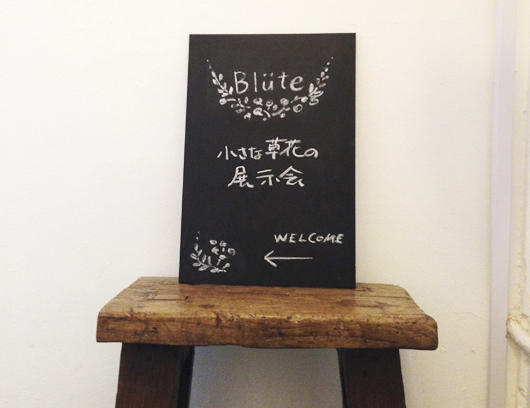 Blüte
小さな草花の
展示会
WELCOME